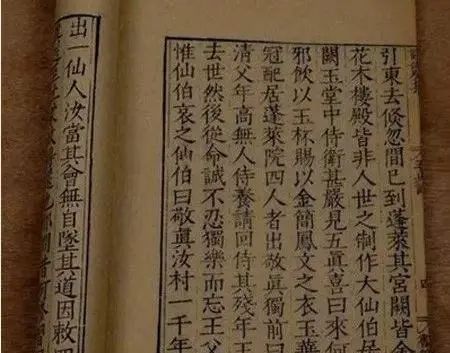 引東去倏忽間已到蓬萊其宮闕皆金
花木樓殿皆非人世之制作大仙伯居
闕玉堂中侍衛甚嚴見五眞喜曰來何
邪飲以玉杯賜以金簡鳳文之衣玉華
冠配居蓬萊院四人者出敬眞獨前曰
清父年高無人侍養請回侍其殘年王
去世然後從命誠不忍獨樂而忘王父
惟仙伯哀之仙伯曰敬眞汝村一千年
出一仙人汝當其會無自墜其道因敕四